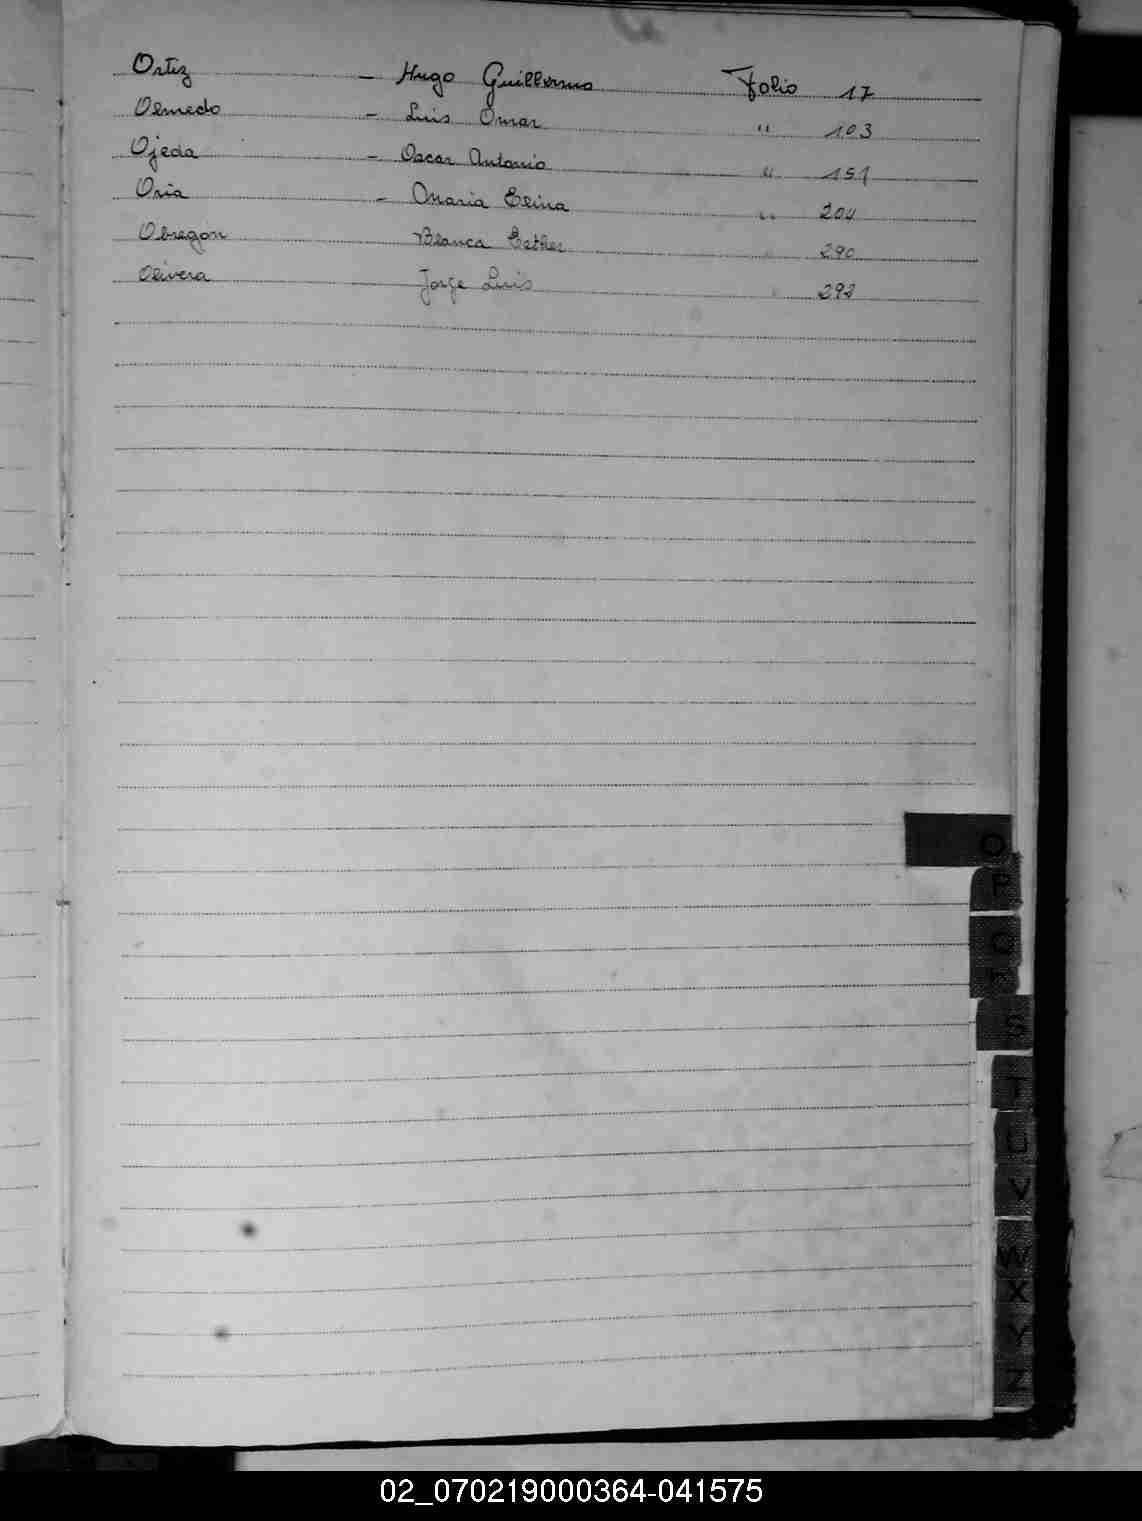 Ortiz - Hugo Guillermo Folio 17
Olmedo - Luis Omar " 103
Ojeda - Oscar Antonio " 151
Oria - Maria Elina " 204
Obregon Blanca Esther " 290
Olivera Jorge Luis " 292
O
P
Q
R
S
T
U
V
W
X
Y
Z
02_070219000364-041575